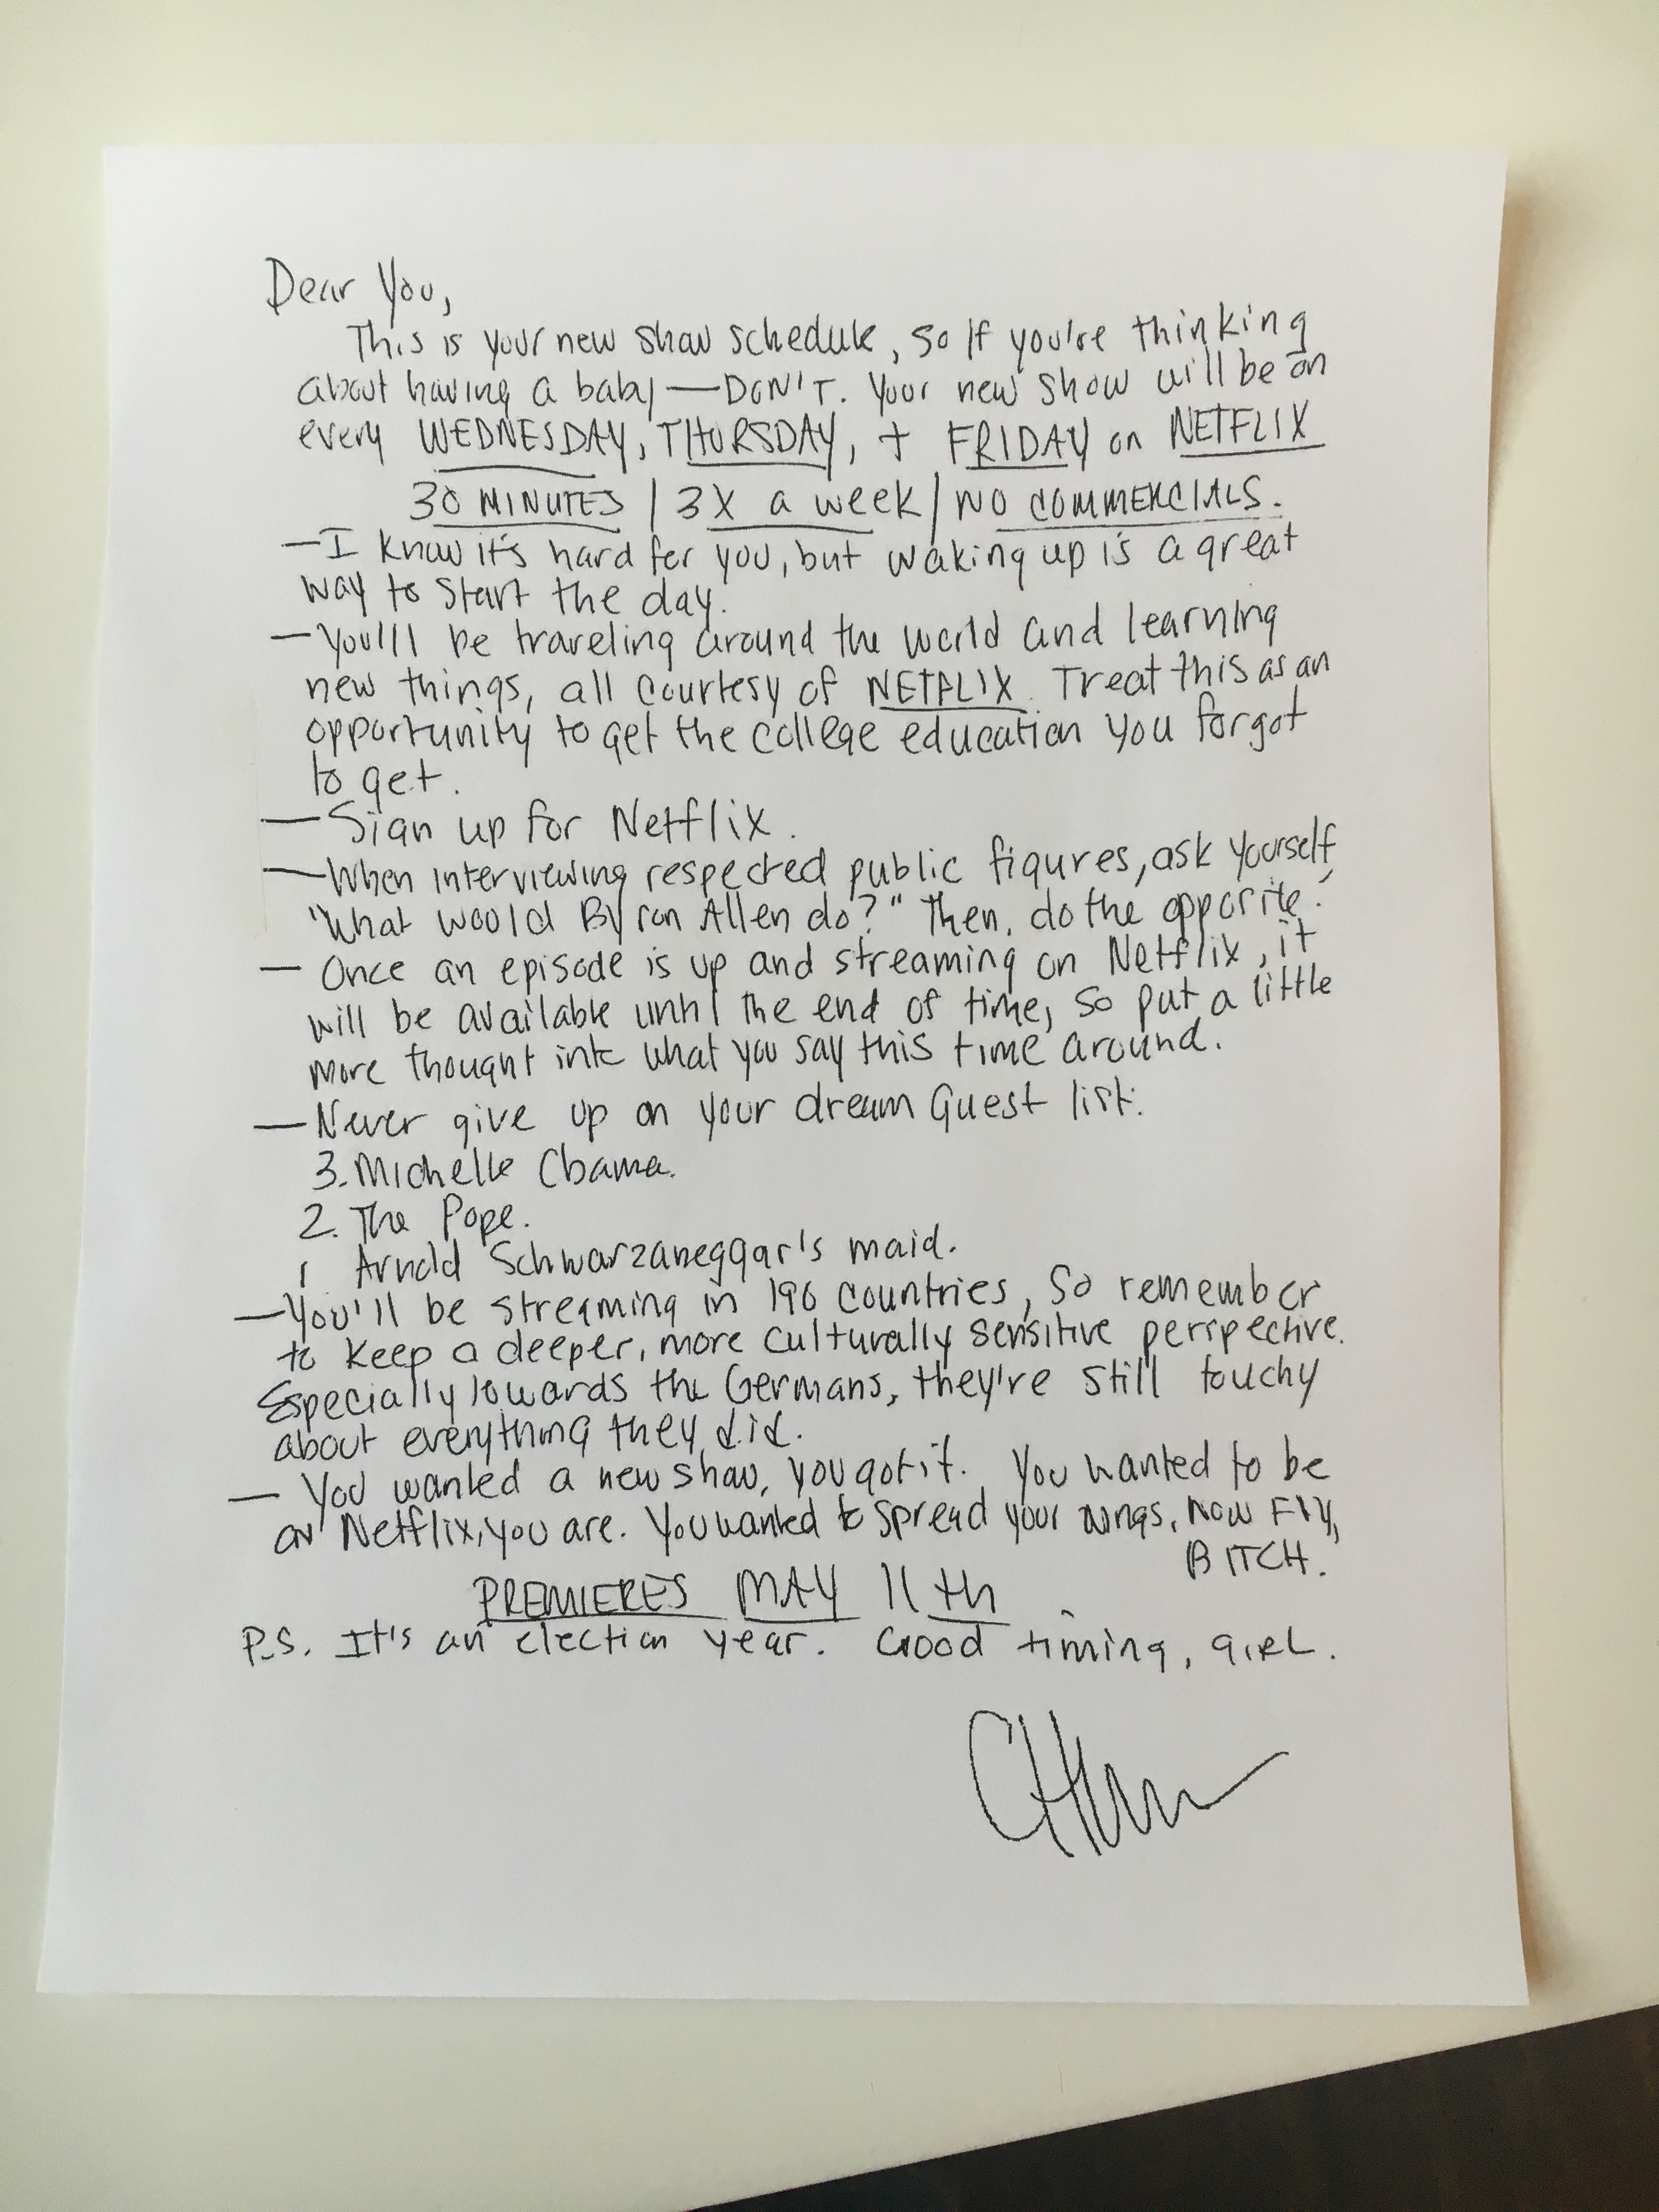 Dear You,
This is your new show schedule, so if you're thinking
about having a baby — DON'T. Your new show will be on
every WEDNESDAY, THURSDAY, + FRIDAY on NETFLIX
30 MINUTES / 3X a week / NO COMMERCIALS.
— I know it's hard for you, but waking up is a great
way to start the day.
— You'll be traveling around the world and learning
new things, all courtesy of NETFLIX. Treat this as an
opportunity to get the college education you forgot
to get.
— Sign up for Netflix.
— When interviewing respected public figures, ask yourself,
"What would Byron Allen do?" Then, do the opposite.
— Once an episode is up and streaming on Netflix, it
will be available until the end of time, so put a little
more thought into what you say this time around.
— Never give up on your dream Guest list:
3. Michelle Obama.
2. The Pope.
1 Arnold Schwarzaneggar's maid.
— You'll be streaming in 190 countries, so remember
to keep a deeper, more culturally sensitive perspective.
Especially towards the Germans, they're still touchy
about everything they did.
— You wanted a new show, you got it. You wanted to be
on Netflix, you are. You wanted to spread your wings, now FLY,
BITCH.
PREMIERES MAY 11th
P.S. It's an election year. Good timing, girl.